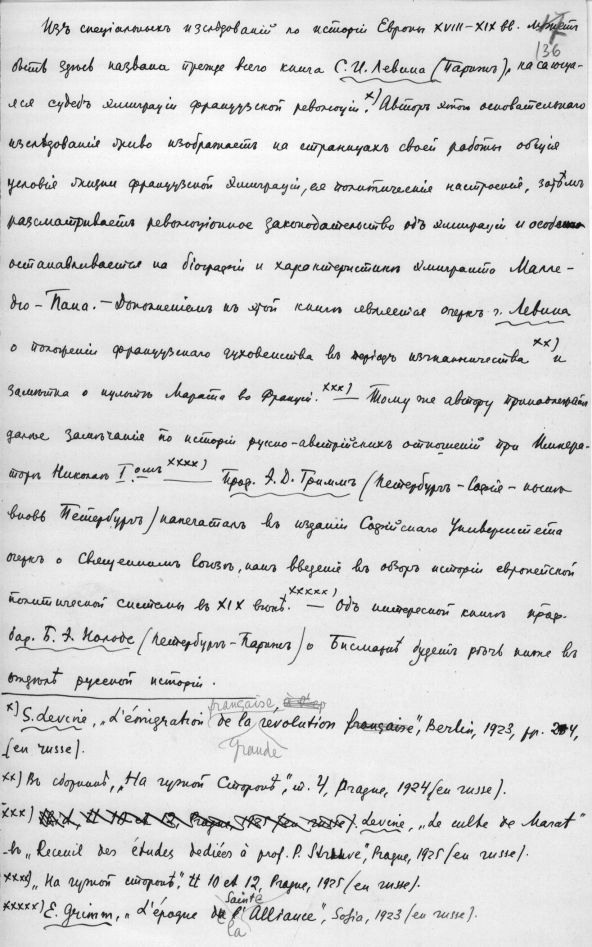 Изъ спеціальныхъ изслѣдованій по исторіи Европы XVIII–XIX вв. можетъ
136
быть здѣсь названа прежде всего книга С. И. Левина (Парижъ), касающа-
яся судебъ эмиграціи французской революціи. x) Авторъ этой основательнаго
изслѣдованія живо изображаетъ на страницахъ своей работы общія
условія жизни французской эмиграціи, ея политическія настроенія, затѣмъ
разсматриваетъ революціонное законодательство объ эмиграціи и особенно
останавливается на біографіи и характеристикѣ эмигранта Малле-
дю-Пана. – Дополненіемъ къ этой книгѣ является очеркъ г. Левина
о положеніи французскаго духовенства въ періодъ изгнанничества xx) и
замѣтка о культѣ Марата во Франціи. xxx) — Тому же автору принадлежатъ
далѣе замѣчанія по исторіи русско-австрійскихъ отношеній при Импера-
торѣ Николаѣ I омъ xxxx) — Проф. Э. Д. Гриммъ (Петербургъ – Софія – нынѣ
вновь Петербургъ) напечаталъ въ изданіи Софійскаго Университета
очеркъ о Священномъ Союзѣ, какъ введеніе въ обзоръ исторіи европейской
политической системы въ XIX вѣкѣ. xxxxx) — Объ интересной книгѣ проф.
бар. Б. Э. Нольде (Петербургъ–Парижъ) о Бисмаркѣ будетъ рѣчь ниже въ
отдѣлѣ русской исторіи.
française,
x) S. Levine, „L'émigration de la revolution française", Berlin, 1923, pp. 204,
grande
(en russe).
xx) Въ сборникѣ „На чужой Сторонѣ", т. 4, Prague, 1924 (en russe).
xxx) Levine, „Le culte de Marat"
въ „Recueil des études dediées à prof. P. Struve", Prague, 1925 (en russe).
xxxx) „На чужой сторонѣ", tt 10 et 12, Prague, 1925 (en russe).
Sainte
xxxxx) E. Grimm, „L'époque de l'Alliance", Sofia, 1923 (en russe).
la